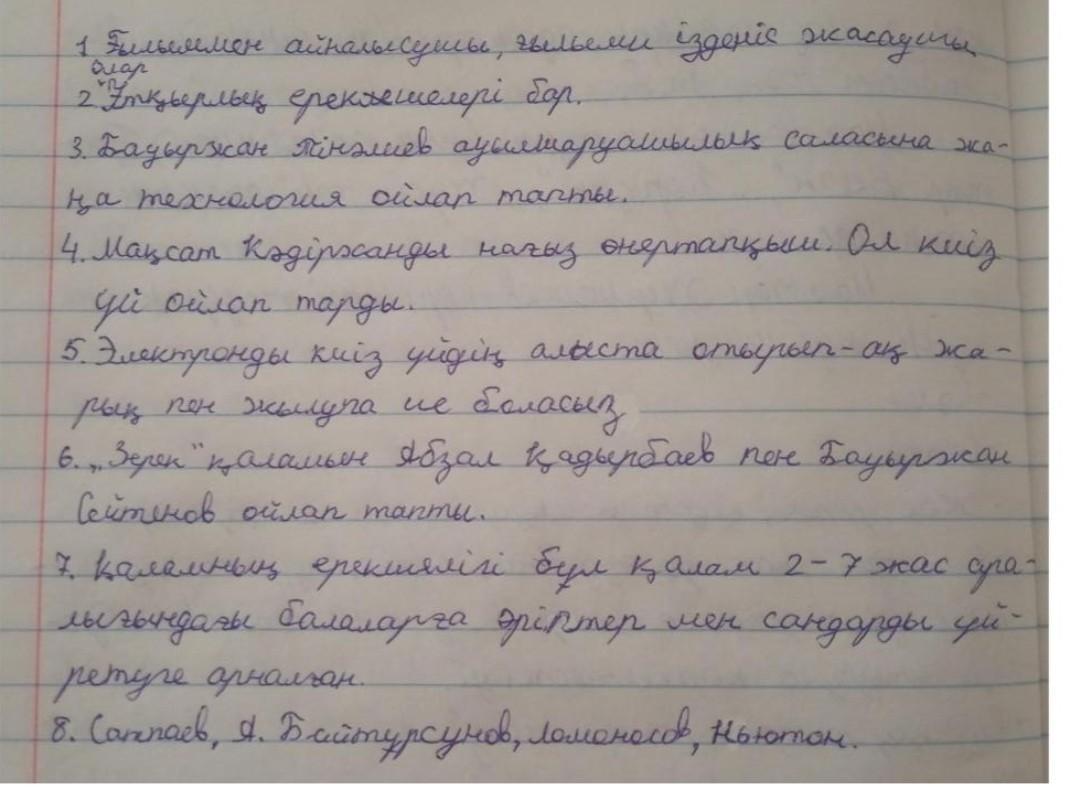 1 Ғылыммен айналысушы, ғылыми ізденіс жасаушы
Олар
2 Өтқырлық ерекшешелері бар.
3. Бауыржан Тінәлиев ауылшаруашылық саласына жа-
ңа технология ойлап тапты.
4. Мақсат Қәдіржанды нағыз өнертапқыш. Ол киіз
үй ойлап тарды.
5. Электронды киіз үйдің алыста отырып-ақ жа-
рық пен жылуға ие боласыз
6. „Зерек" қаламын Абзал Қадырбаев пен Бауыржан
Сейтенов ойлап тапты.
7. Қаламның ерекшелігі бұл қалам 2-7 жас ара-
лығындағы балаларға әріптер мен сандарды үй-
ретуге арналған.
8. Сатпаев, А. Байтұрсунов, Ломоносов, Ньютон.